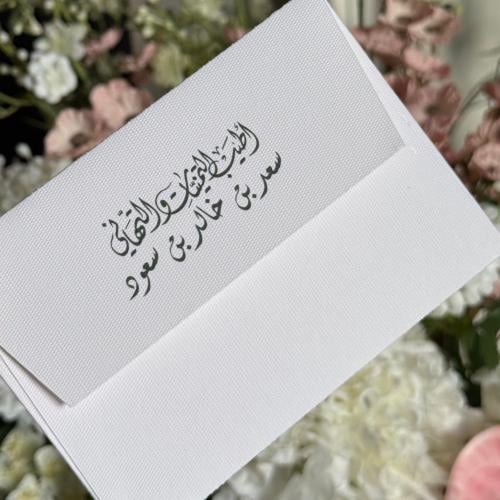 أطيب التمنيات والتهاني
سعد بن خالد بن سعود